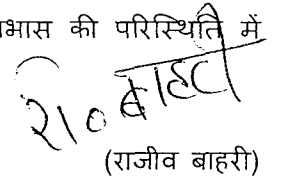 भास की परिस्थिति में
रा० बाहरी
(राजीव बाहरी)